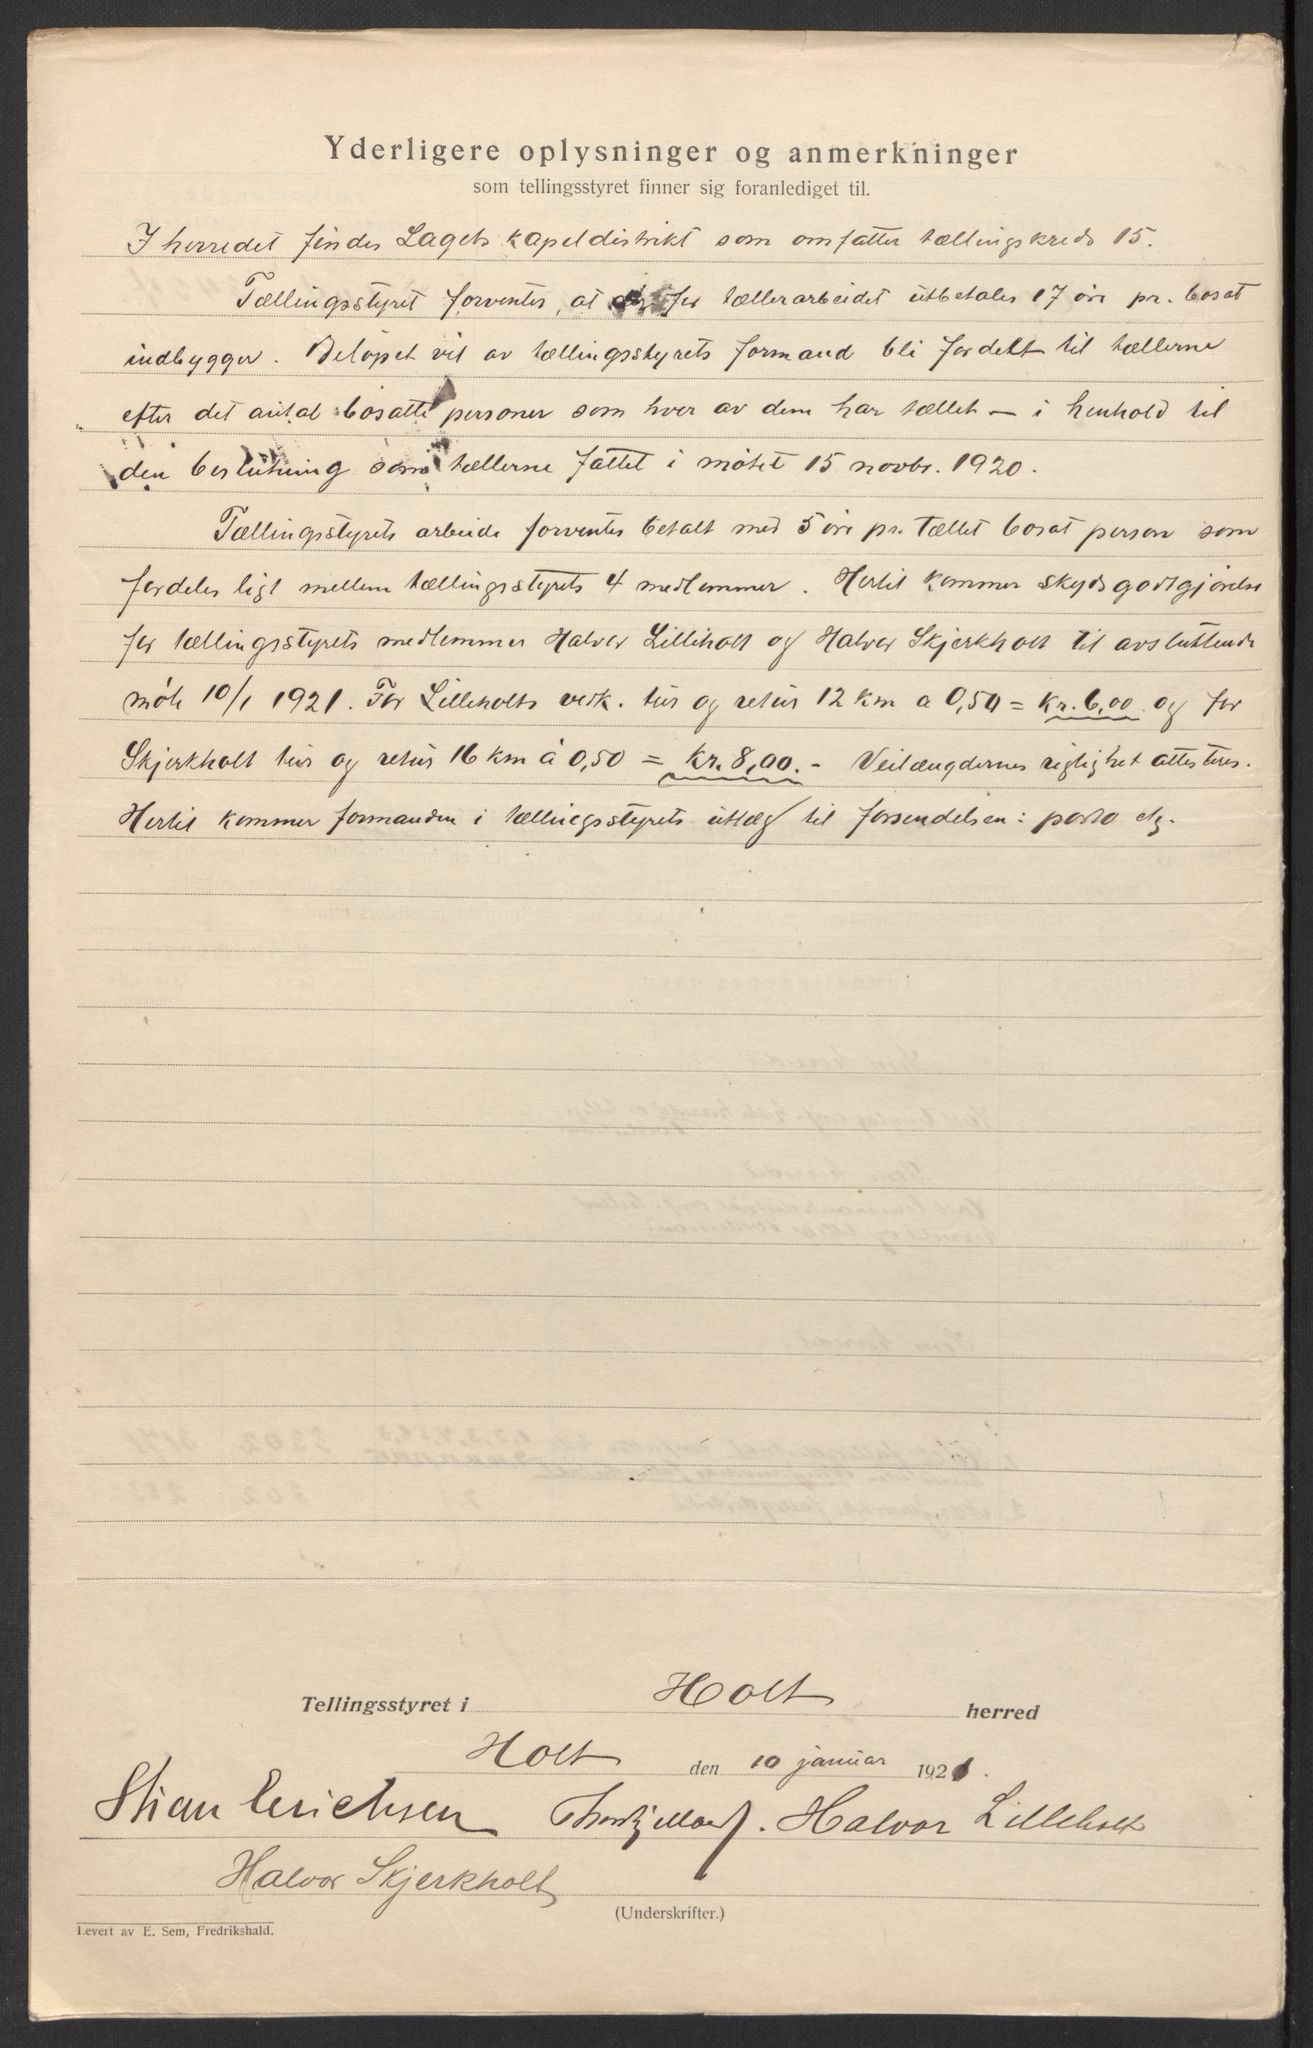 Yderligere oplysninger og anmerkninger
som tellingsstyret finner sig foranlediget til.
I herredet findes Lagets kapeldistrikt som omfatter tællingskreds 15.
Tællingsstyret forventer, at for tællerarbeidet utbetales 17 øre pr. bosat
indbygger. Beløpet vil av tællingsstyrets formand bli fordelt til tællerne
efter det antal bosatte personer som hver av dem har tællet — i henhold til
den beslutning som tællerne fattet i møtet 15 novbr. 1920.
Tællingsstyrets arbeide forventes betalt med 5 øre pr. tællet bosat person som
fordeles ligt mellem tællingsstyrets 4 medlemmer. Hertil kommer skydsgodtgjørelse
for tællingsstyrets medlemmer Halvor Lilleholt og Halvor Skjerkholt til avsluttende
møte 10/1 1921. For Lilleholts vedk. tur og retur 12 km a 0,50 = Kr. 6,00 og for
Skjerkholt tur og retur 16 km á 0,50 = Kr. 8,00. - Veilængdernes rigtighet attesteres.
Hertil kommer formanden i tællingsstyrets utlæg til forsendelsen: porto etz.
Tellingsstyret i Holt herred
Holt den 10 januar 1921.
Stian Erichsen Halvor Lilleholt
Halvor Skjerkholt
(Underskrifter.)
Levert av E. Sem, Fredrikshald.